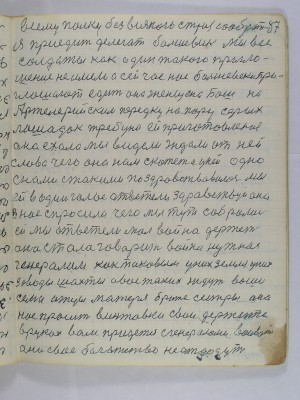 всему полку без всякого страх сообщит 57
Я приедит делегат большевик мы все
солдаты как один такого пригло-
шение не имели сей час нас большевики при-
глашают едит она женщина Бош на
Артелерийским передку на пару серых
лошадок трибуна ей приготовленая
она ехала мы видели ждали от ней
слова чего она нам скажет она одно
с нами стаками поздравствовалась мы
ей в один голос ответили здравствуй она
нас спросила чего мы тут собрали
ей мы ответили нам война держит
она стала говорить война нужная
генералам как таковым у них земли у них
заводы шахты свое таких ждут ваши
семя отцы матеря братя сестры она
нас просит винтовки свои держите
в руках вам придется с генералами воевать
они свое богатство не отдадут